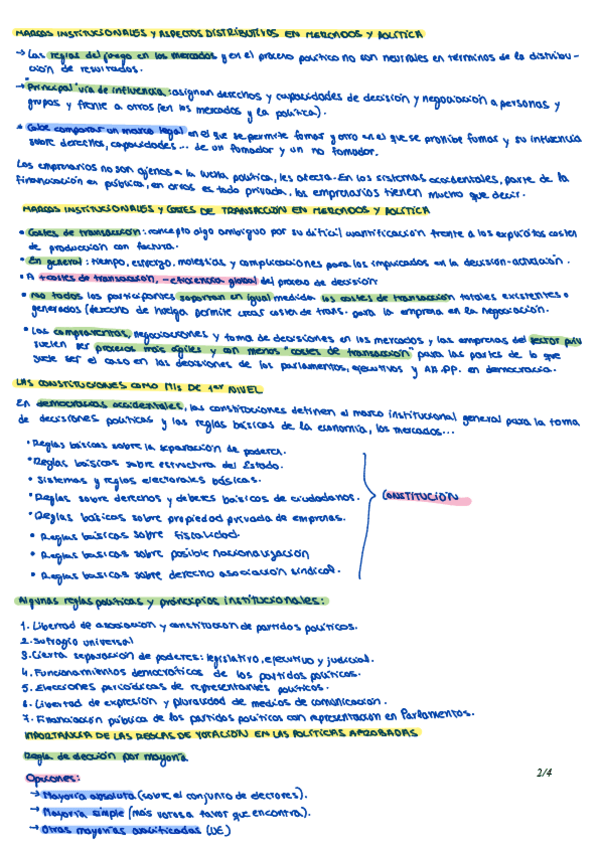 MARCOS INSTITUCIONALES Y ASPECTOS DISTRIBUTIVOS EN MERCADOS Y POLÍTICA
→ Las reglas del juego en los mercados y en el proceso político no son neutrales en términos de la distribu-
ción de resultados.
→ Principal vía de influencia: asignan derechos y capacidades de decisión y negociación a personas y
grupos y frente a otros (en los mercados y la política).
Cabe comparar un marco legal en el que se permite fumar y otro en el que se prohibe fumar y su influencia
sobre derechos, capacidades... de un fumador y un no fumador.
Los empresarios no son ajenos a la lucha política, les afecta. En los sistemas occidentales, parte de la
financiación es pública, en otros es todo privada, los empresarios tienen mucho que decir.
MARCOS INSTITUCIONALES Y COSTES DE TRANSACCIÓN EN MERCADOS Y POLÍTICA
• Costes de transacción: concepto algo ambiguo por su difícil cuantificación frente a los explícitos costes
de producción con factura.
• En general: tiempo, esfuerzo, molestias y complicaciones para los implicados en la decisión-actuación.
• A + costes de transacción, - eficiencia global del proceso de decisión
• No todos los participantes soportan en igual medida los costes de transacción totales existentes o
generados (derecho de huelga permite crear costes de trans. para la empresa en la negociación.
• Las compraventas, negociaciones y toma de decisiones en los mercados y las empresas del sector priv
suelen ser procesos más ágiles y con menos "costes de transacción" para las partes de lo que
suele ser el caso en las decisiones de los parlamentos, ejecutivos y AA.PP. en democracia.
LAS CONSTITUCIONES COMO MIs DE 1er NIVEL
En democracias occidentales, las constituciones definen el marco institucional general para la toma
de decisiones políticas y las reglas básicas de la economía, los mercados...
• Reglas básicas sobre la separación de poderes.
• Reglas básicas sobre estructura del Estado.
• Sistemas y reglas electorales básicas.
• Reglas sobre derechos y deberes básicos de ciudadanos.
CONSTITUCIÓN
• Reglas básicas sobre propiedad privada de empresas.
• Reglas básicas sobre fiscalidad.
• Reglas básicas sobre posible nacionalización
• Reglas básicas sobre derecho asociación sindical.
Algunas reglas políticas y principios institucionales:
1. Libertad de asociación y constitución de partidos políticos.
2. Sufragio universal
3. Cierta separación de poderes: legislativo, ejecutivo y judicial.
4. Funcionamientos democráticos de los partidos políticos.
5. Elecciones periódicas de representantes políticos.
6. Libertad de expresión y pluralidad de medios de comunicación.
7. Financiación pública de los partidos políticos con representación en Parlamentos.
IMPORTANCIA DE LAS REGLAS DE VOTACIÓN EN LAS POLÍTICAS APROBADAS
Regla de decisión por mayoría
Opciones:
→ Mayoría absoluta (sobre el conjunto de electores).
→ Mayoría simple (más votos a favor que en contra).
→ Otras mayorías cualificadas (UE)
2/4